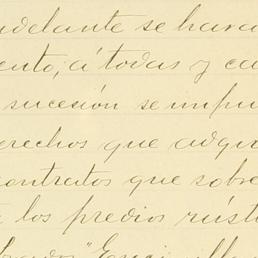 adelante se hara
ento, á todas y ca
sucesión se impu
erechos que adqui
contratos que sobre
los predios rúst